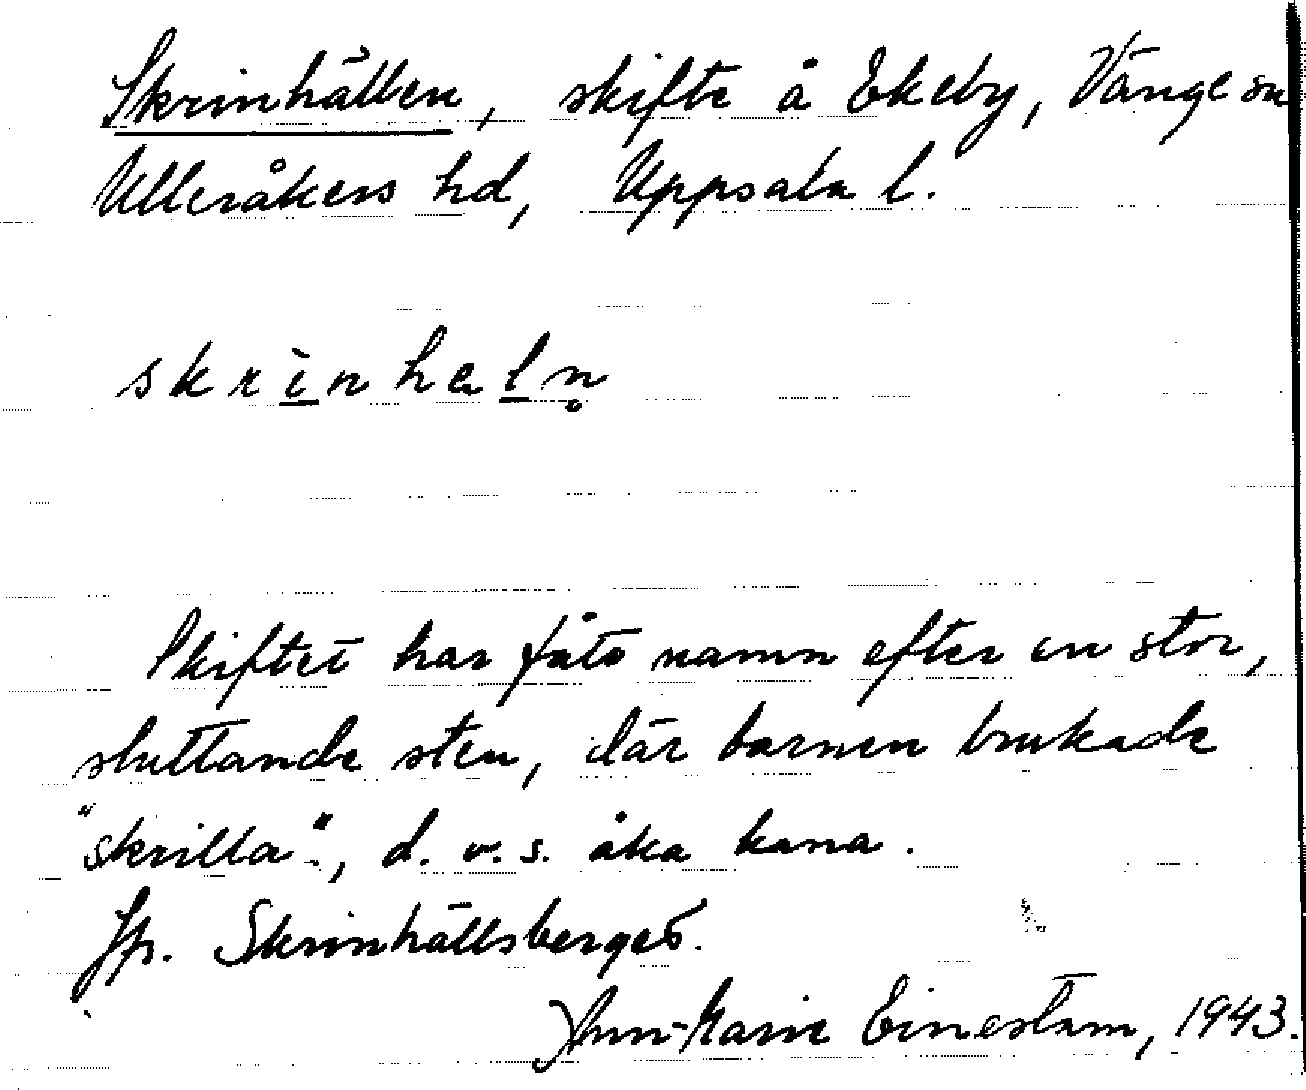 Skrinhällen, skifte å Ekeby, Vänge sn
Ulleråkers hd, Uppsala l.
skrìnhaln̥
Skiftet har fått namn efter en stor,
sluttande sten, där barnen brukade
"skrilla", d. v. s. åka kana.
Jfr. Skrinhällsberget.
Ann-Marie Einestam, 1943.